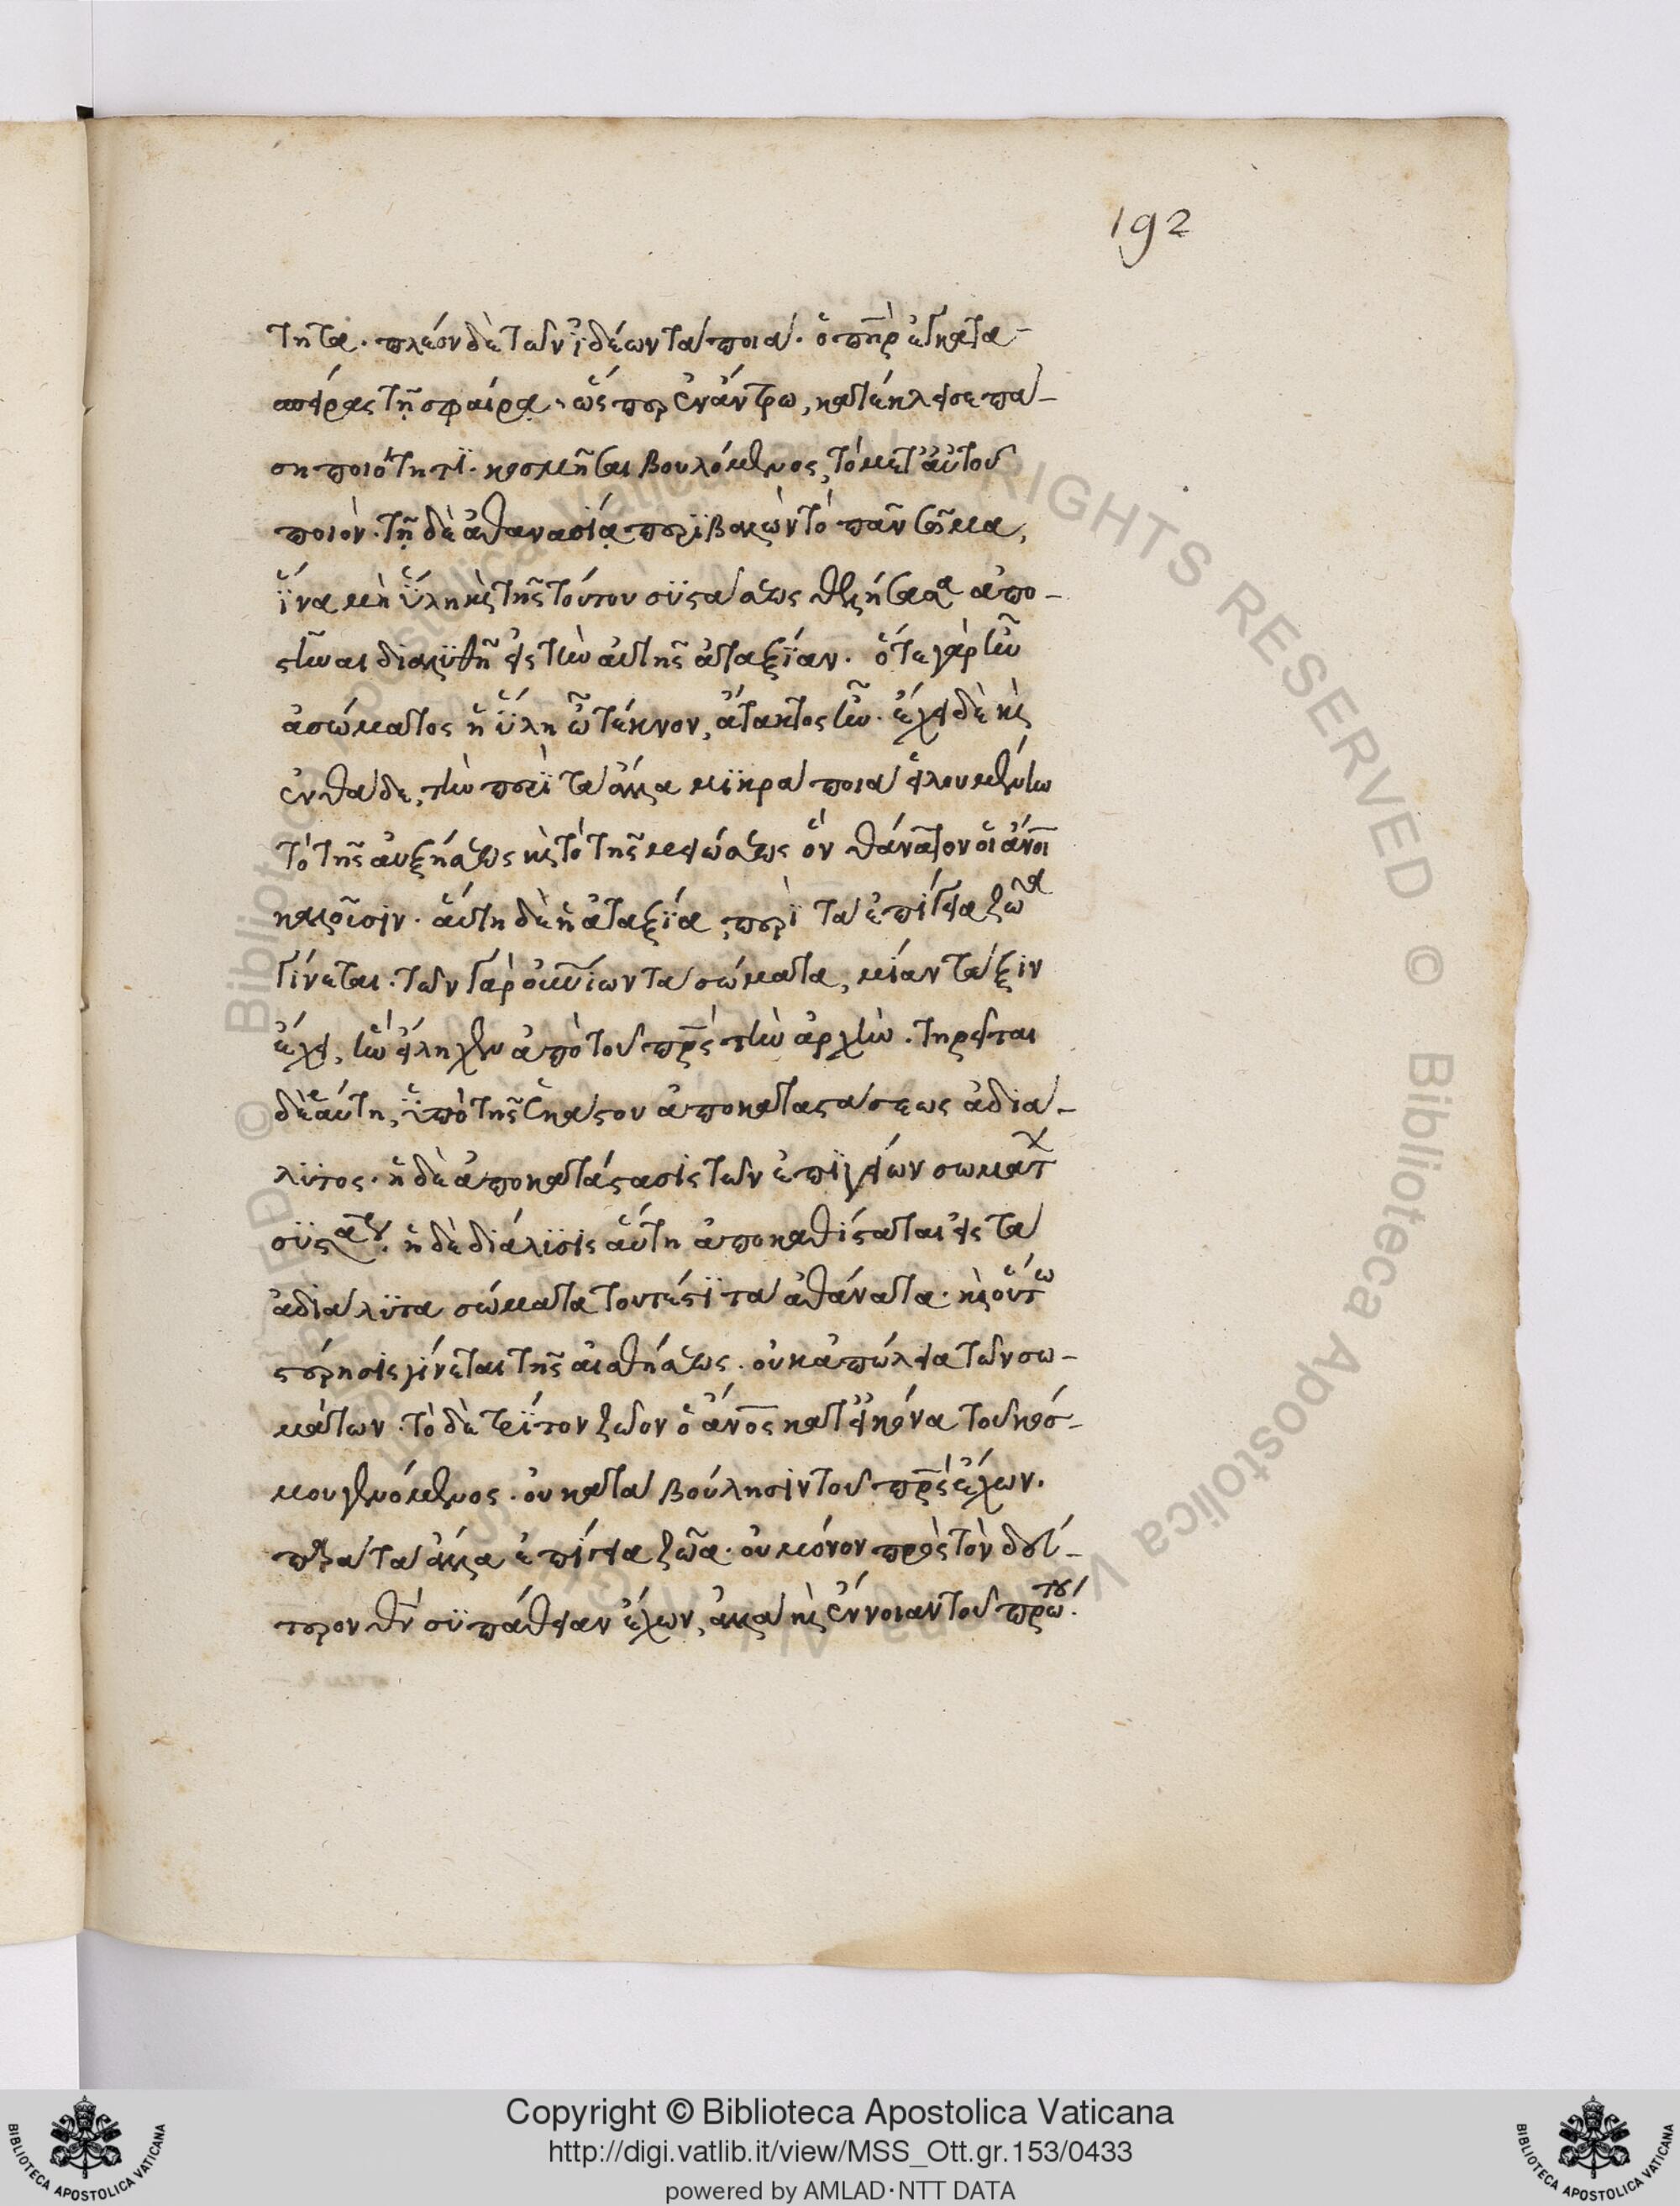 192
τητα. πλέον δὲ τῶν ἰδέων τὰ ποιά. ὁ πὴρ ἐγκατα-
σπείρας τῇ σφαίρᾳ, ὥσπερ ἐν ἄντρω, κατέκλεισε πά-
ση ποιότητϊ. κοσμῆσαι βουλόμενος, τὸ μετ' αὐτοῦ
ποιόν. τῇ δὲ ἀθανασίᾳ περϊβαλὼν τὸ πᾶν σῶμα,
ἵνα μὴ ὕλη καὶ τῆς τούτου συστάσεως θελήσασα ἀπο-
στῆναι διαλυθῇ εἰς τὴν αὐτῆς ἀταξΐαν. ὅτε γὰρ ἦν
ἀσώματος ἡ ὕλη ὦ τέκνον, ἄτακτος ἦν. ἔχει δὲ καὶ
ἐνθάδε, τὴν περϊ τὰ ἄλλα μϊκρὰ ποιὰ εἰλουμένην
τὸ τῆς αὐξήσεως καὶ τὸ τῆς μειώσεως ὃν θάνατον οἱ ἄνοι
καλοῦσιν. αὕτη δὲ ἡ ἀταξΐα, περϊ τὰ ἐπίγεια ζῶα
γίνεται. τῶν γὰρ οὐνίων τὰ σώματα, μίαν τάξιν
ἔχει, ἣν εἴληχεν ἀπὸ τοῦ πρς τὴν ἀρχήν. τηρεῖται
δὲ αὕτη, ὑπὸ τῆς ἑκάστου ἀποκαταστάσεως ἀδιά-
λυτος. ἡ δὲ ἀποκατάστασις τῶν ἐπϊγείων σωμάτ
συστάσ. ἡ δὲ διάλϋσις αὕτη ἀποκαθίσταται εἰς τὰ
ἀδιάλϋτα σώματα τουτέστϊ τὰ ἀθάνατα. καὶ οὕτω
στέρησις γίνεται τῆς αἰσθήσεως. οὐκ ἀπώλεια τῶν σω-
μάτων. τὸ δὲ τρΐτον ζῶον ὁ ἄνος κατ' εἰκόνα τοῦ κό-
σμου γενόμενος. οὐ κατὰ βούλησιν τοῦ πρς ἔχων.
παρὰ τὰ ἄλλα ἐπίγεια ζῶα. οὐ μόνον πρὸς τὸν δεύ-
τερον θν συπάθειαν ἔχων, ἀλλὰ καὶ ἔννοιαν τοῦ πρώτου.
Copyright © Biblioteca Apostolica Vaticana
http://digi.vatlib.it/view/MSS_Ott.gr.153/0433
powered by AMLAD·NTT DATA
BIBLIOTECA APOSTOLICA VATICANA
BIBLIOTECA APOSTOLICA VATICANA